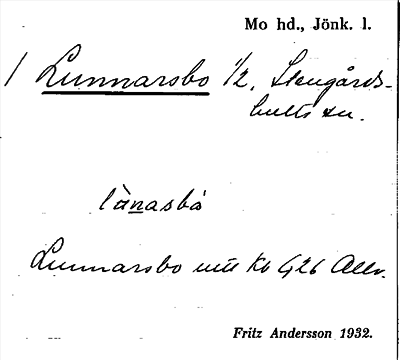 Mo hd., Jönk. l.
/ Lunnarsbo 1/2, Stengårds-
hults sn.
lànasbå
Lunnarsbo mtl Kb G26 Allv.
Fritz Andersson 1932.